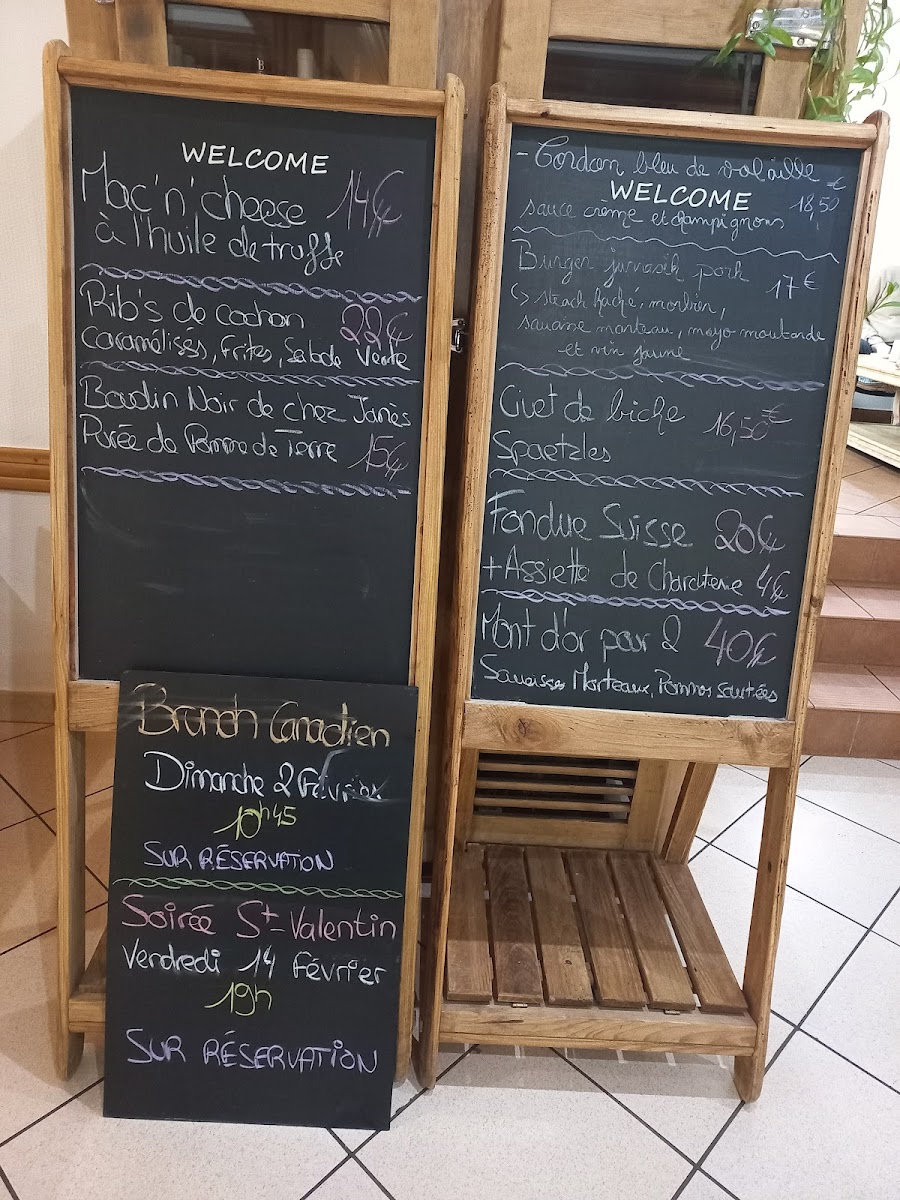 WELCOME
Mac'n'cheese 14€
à l'huile de truffe
Rib's de cochon 22€
caramélisés, Frites, Salade Verte
Boudin Noir de chez Janès
Purée de Pomme de Terre 15€
Brunch Canadien
Dimanche 2 Février
10h45
SUR RÉSERVATION
Soirée St-Valentin
Vendredi 14 Février
19h
SUR RÉSERVATION
- Cordon bleu de volaille €
WELCOME 18,50
sauce crème et champignons
Burger jurrasik pork 17€
↳ steack haché, morbier,
saucisse morteau, mayo moutarde
et vin jaune
Civet de biche 16,50€
Spaetzles
Fondue Suisse 20€
+ Assiette de Charcuterie 4€
Mont d'or pour 2 40€
Saucisses Morteaux, Pommes sautées